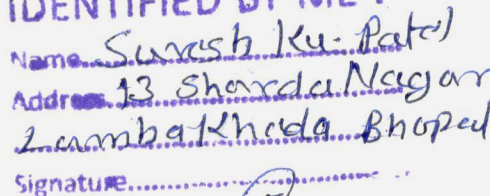 IDENTIFIED BY ME
Name Suresh Ku. Patel
Address 13 Sharda Nagar
Lambakheda Bhopal
Signature